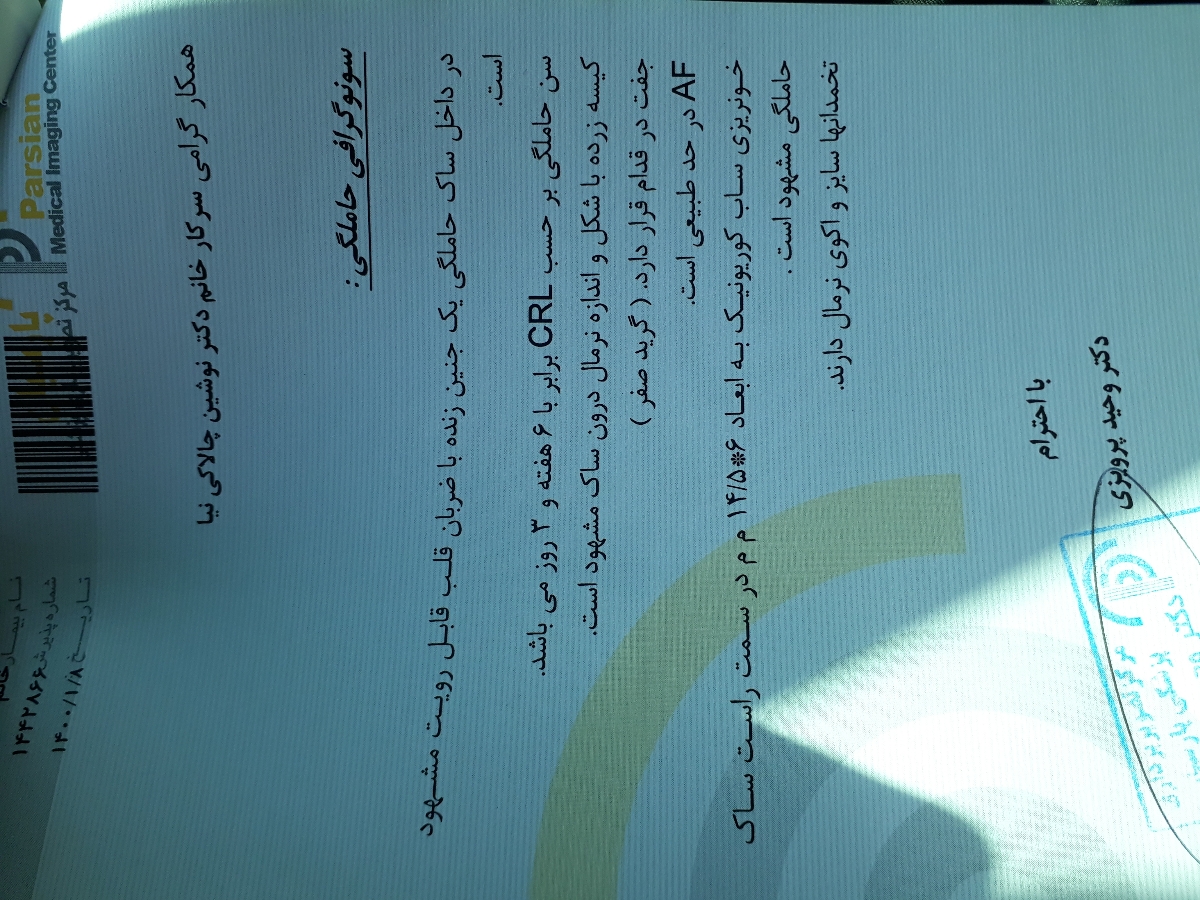 Parsian
Medical Imaging Center
مرکز
شماره پذیرش: ۱۴۴۲۸۶۶
تاریخ: ۱۴۰۰/۱/۸
همکار گرامی سرکار خانم دکتر نوشین چالاکی نیا
سونوگرافی حاملگی:
در داخل ساک حاملگی یک جنین زنده با ضربان قلب قابل رویت مشهود
است.
سن حاملگی بر حسب CRL برابر با ۶ هفته و ۳ روز می باشد.
کیسه زرده با شکل و اندازه نرمال درون ساک مشهود است.
جفت در قدام قرار دارد. ( گرید صفر )
AF در حد طبیعی است.
خونریزی ساب کوریونیک به ابعاد ۶*۱۴/۵ م م در سمت راست ساک
حاملگی مشهود است .
تخمدانها سایز و اکوی نرمال دارند.
با احترام
دکتر وحید پرویزی
مرکز تصویربرداری
پزشکی
دکتر